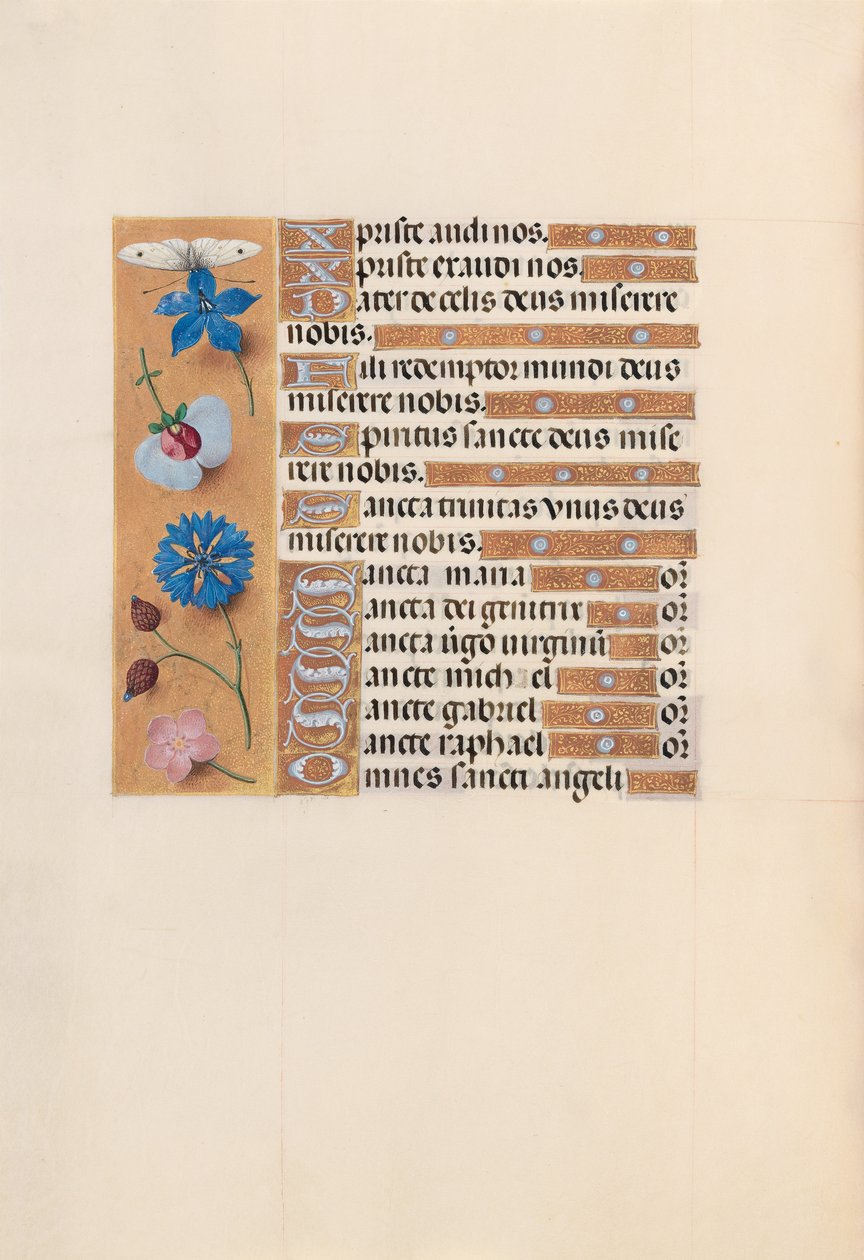 Xpriste audi nos.
Xpriste exaudi nos.
Pater de celis deus miserere
nobis.
Fili redemptor mundi deus
miserere nobis.
Spiritus sancte deus mise
rere nobis.
Sancta trinitas vnus deus
miserere nobis.
Sancta maria or̄
Sancta dei genitrix or̄
Sancta ūgo uirginū or̄
Sancte michael or̄
Sancte gabriel or̄
Sancte raphael or̄
Omnes sancti angeli